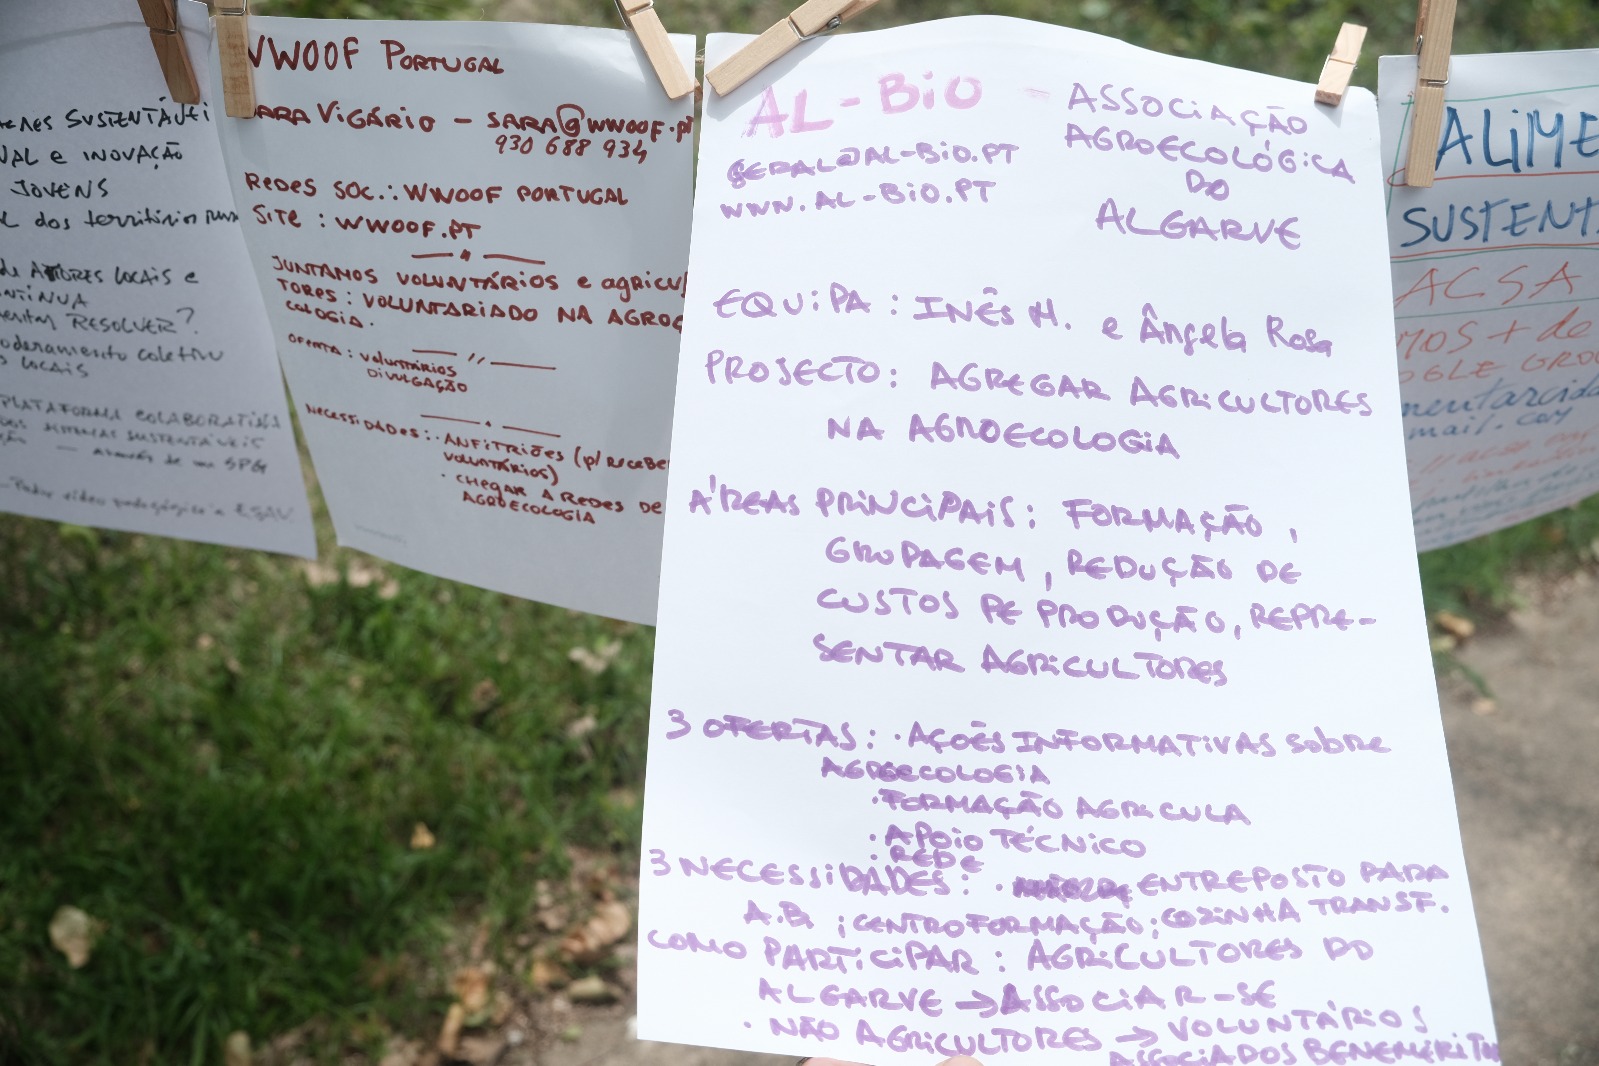 SUSTENTÁVEI
e INOVAÇÃO
JOVENS
dos territórios
de ATORES LOCAIS e
RESOLVER?
coletivo
LOCAIS
PLATAFORMA COLABORATIVA
SISTEMAS SUSTENTÁVEIS
através de um SPG
vídeo pedagógico a ESAV
WWOOF PORTUGAL
SARA VIGÁRIO - SARA@WWOOF.PT
930 688 934
REDES SOC.: WWOOF PORTUGAL
SITE : WWOOF.PT
JUNTAMOS VOLUNTÁRIOS e agricul
TORES : VOLUNTARIADO NA AGROE
COLOGIA.
OFERTA : voluntários
DIVULGAÇÃO
NECESSIDADES : . ANFITRIÕES (p/ RECEBER
VOLUNTÁRIOS)
. CHEGAR A REDES DE
AGROECOLOGIA
AL-BIO - ASSOCIAÇÃO
AGROECOLÓGICA
DO
ALGARVE
GERAL@AL-BIO.PT
WWW.AL-BIO.PT
EQUIPA : INÊS H. e Ângela Rosa
PROJECTO: AGREGAR AGRICULTORES
NA AGROECOLOGIA
ÁREAS PRINCIPAIS: FORMAÇÃO,
GRUPAGEM, REDUÇÃO DE
CUSTOS DE PRODUÇÃO, REPRE-
SENTAR AGRICULTORES
3 OFERTAS: . AÇÕES INFORMATIVAS sobre
AGROECOLOGIA
. FORMAÇÃO AGRICULA
. APOIO TÉCNICO
. REDE
3 NECESSIDADES: . ENTREPOSTO PARA
A.B. ; CENTRO FORMAÇÃO; COZINHA TRANSF.
COMO PARTICIPAR : AGRICULTORES DO
ALGARVE → ASSOCIAR-SE
. NÃO AGRICULTORES → VOLUNTÁRIOS
ASSOCIADOS BENEMÉRITOS
ALIME
SUSTENT
ACSA
MOS + de
OGLE GROU
mentarcida
mail.com